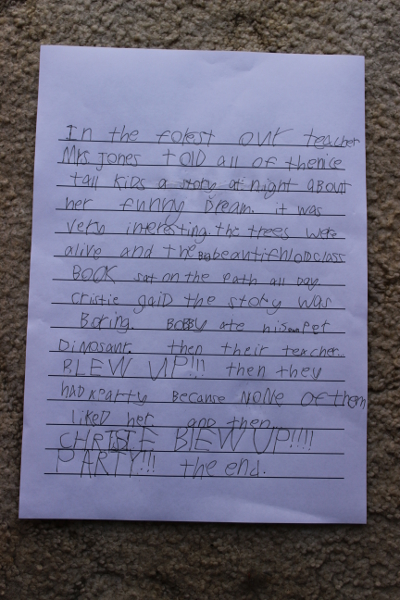 In the forest our teacher
Mrs. Jones TOLD all of the nice
tall KIDS a story at night ABOUT
her funny Dream. it was
very interesting. the trees were
alive and the Big beautiful old class
BOOK sat on the Path all Day
Cristie said the story was
Boring. BOBBY ate his Pet
Dinosaur. then their teacher
BLEW UP!!! then they
had Party Because NONE of them
liked her and then
CHRISTIE BlEW UP!!!!
PARTY!!! the end.